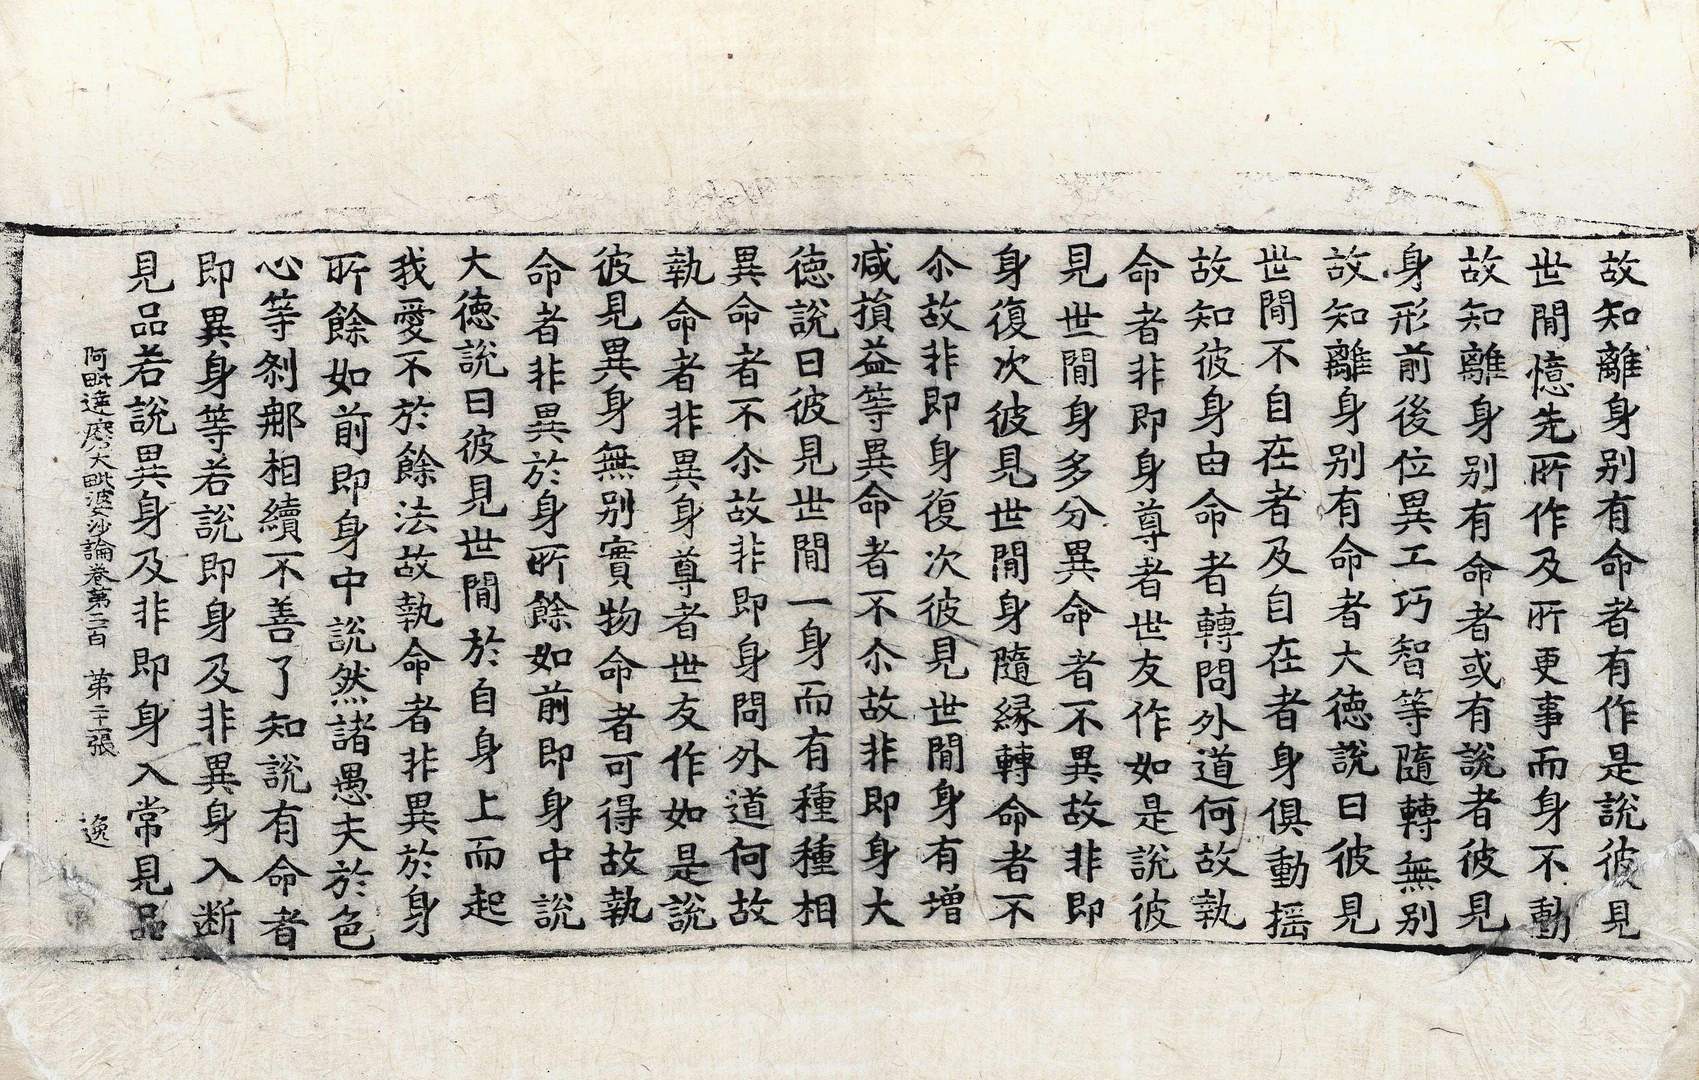 故知離身别有命者有作是說彼見
世閒憶先所作及所更事而身不動
故知離身别有命者或有說者彼見
身形前後位異工巧智等隨轉無别
故知離身别有命者大德說曰彼見
世閒不自在者及自在者身俱動搖
故知彼身由命者轉問外道何故執
命者非即身尊者世友作如是說彼
見世閒身多分異命者不異故非即
身復次彼見世閒身隨緣轉命者不
尒故非即身復次彼見世閒身有增
减損益等異命者不尒故非即身大
德說曰彼見世閒一身而有種種相
異命者不尒故非即身問外道何故
執命者非異身尊者世友作如是說
彼見異身無别實物命者可得故執
命者非異於身所餘如前即身中說
大德說曰彼見世閒於自身上而起
我愛不於餘法故執命者非異於身
所餘如前即身中說然諸愚夫於色
心等剎那相續不善了知說有命者
即異身等若說即身及非異身入断
見品若說異身及非即身入常見品
阿毗達磨大毗婆沙論卷第二百 第二十一張 逸